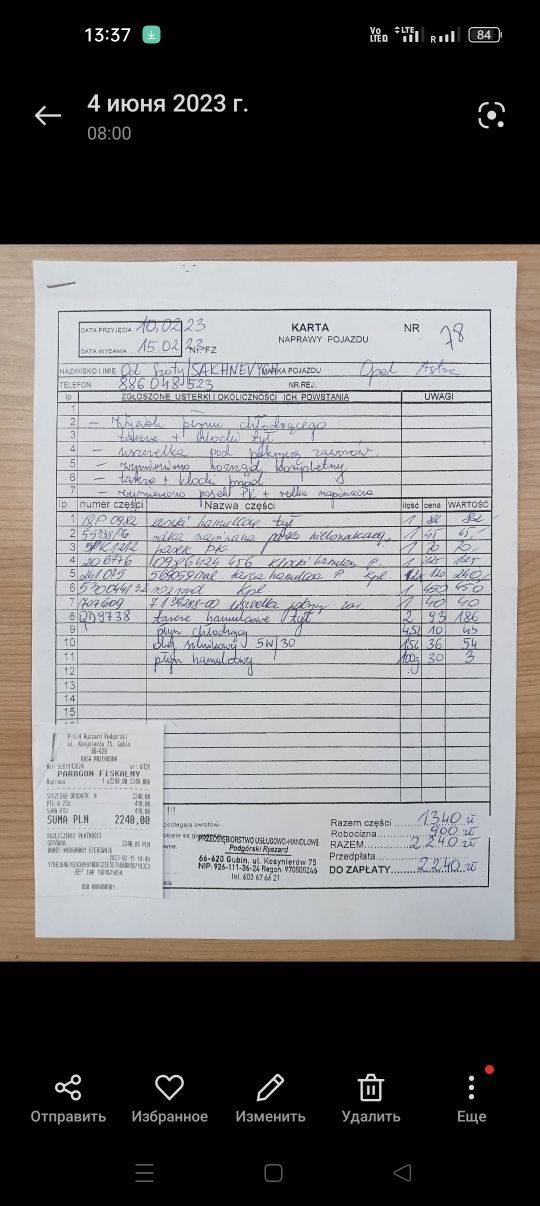 13:37
Vo LTED LTE R 84
4 июня 2023 г.
08:00
DATA PRZYJĘCIA 10.02.23
DATA WYDANIA 15.02.23 NIP FZ
KARTA
NAPRAWY POJAZDU
NR 78
NAZWISKO I IMIĘ SAKHNEVYCH MARKA POJAZDU Opel Astra
TELEFON 886 048 523 NR.REJ.
lp ZGŁOSZONE USTERKI I OKOLICZNOŚCI ICH POWSTANIA UWAGI
1
2 – Wyciek płynu chłodzącego
3 – tarcze + klocki tył
4 – uszczelka pod pokrywą zaworów
5 – wymieniono rozrząd kompletny
6 – tarcze + klocki przód
7 – wymieniono pasek PK + rolka napinacza
lp numer części Nazwa części ilość cena WARTOŚĆ
1 klocki hamulcowe tył 1 82 82
2 rolka napinacza paska 1 45 45,-
3 pasek PK 1 70 70.-
4 206776 0986424 456 klocki hamulco P. 1 125 125
5 241075 tarcza hamulco P. kpl 120 240
6 rozrząd kpl 1 450 450
7 707609 uszczelka pokryw zaw. 1 40 40
8 QD9738 tarcze hamulcowe tył 2 93 186
9 płyn chłodzący 4,5L 10 45
10 olej silnikowy 5W/30 1,5L 36 54
11 płyn hamulcowy 100g 30 3
12
13
14
15
P.U.H Ryszard Podgórski
ul. Kosynierów 75, Gubin
66-620
KASA PRZENOŚNA
PARAGON FISKALNY
Naprawa 1 x2240,00 2240,00A
SPRZEDAŻ OPODATK. A 2240,00
PTU A 23% 418,86
SUMA PTU 418,86
SUMA PLN 2240,00
ROZLICZENIE PŁATNOŚCI
GOTÓWKA 2240,00 PLN
KIEROWNIK
2023-02-15 14:49
!!!
podlegają zwrotowi.
PRZEDSIĘBIORSTWO USŁUGOWO-HANDLOWE
Podgórski Ryszard
66-620 Gubin, ul. Kosynierów 75
NIP: 926-111-36-24 Regon: 970505246
tel. 603 67 66 21
Razem części 1340 zł
Robocizna 900 zł
RAZEM 2240 zł
Przedpłata
DO ZAPŁATY 2240 zł
Отправить
Избранное
Изменить
Удалить
Еще